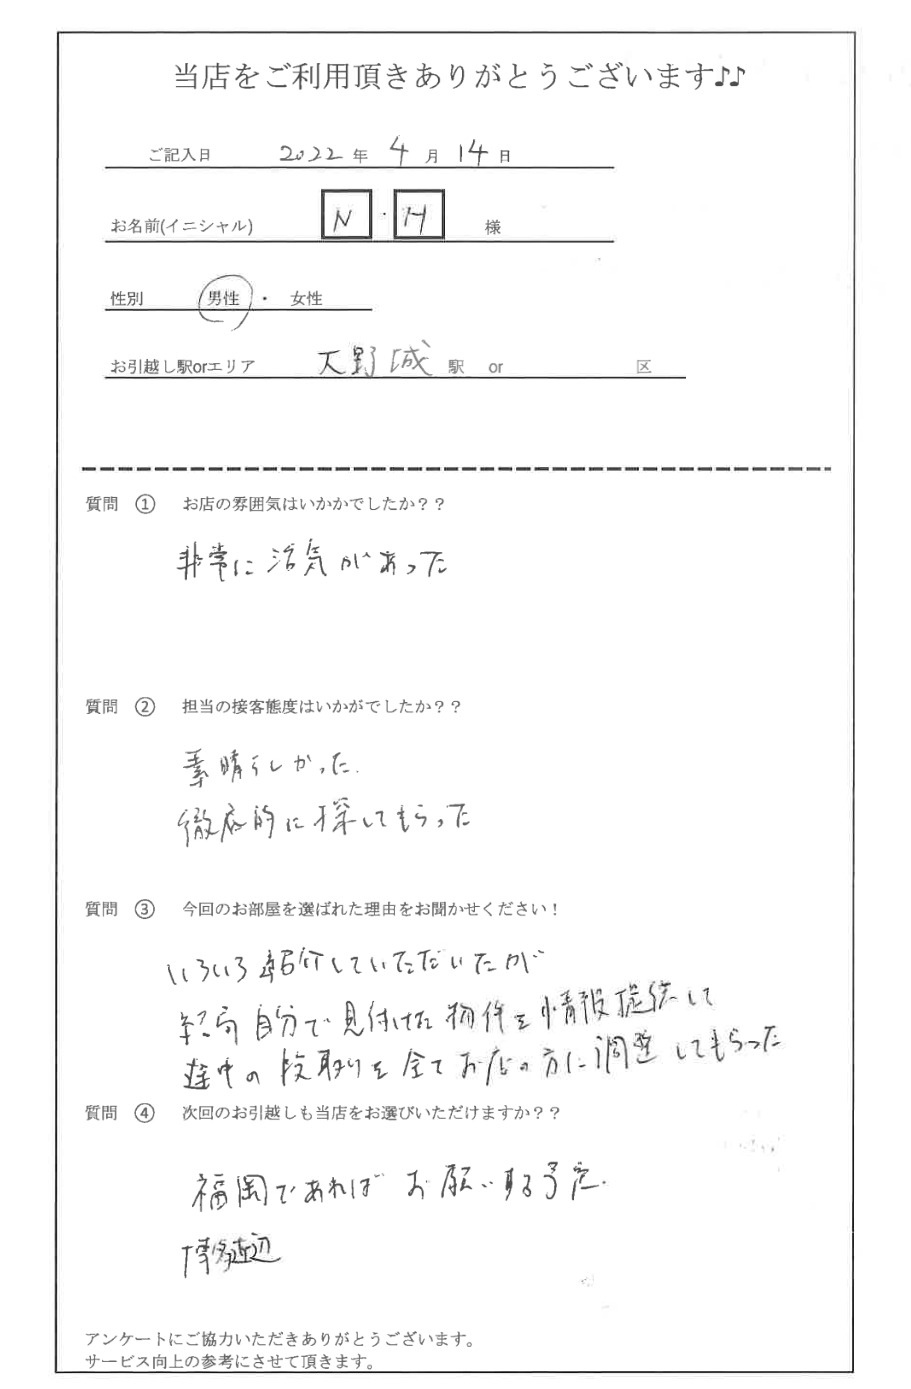 当店をご利用頂きありがとうございます♪♪
ご記入日 2022 年 4 月 14 日
お名前(イニシャル) N ・ H 様
性別 男性 ・ 女性
お引越し駅orエリア 大野城 駅 or 区
質問 ① お店の雰囲気はいかかでしたか？？
非常に活気があった
質問 ② 担当の接客態度はいかがでしたか？？
素晴らしかった.
徹底的に探してもらった
質問 ③ 今回のお部屋を選ばれた理由をお聞かせください！
いろいろ紹介していただいたが
結局自分で見付けた物件を情報提供して
途中の段取りを全てお店の方に調整してもらった
質問 ④ 次回のお引越しも当店をお選びいただけますか？？
福岡であればお願いする予定.
博多近辺
アンケートにご協力いただきありがとうございます。
サービス向上の参考にさせて頂きます。